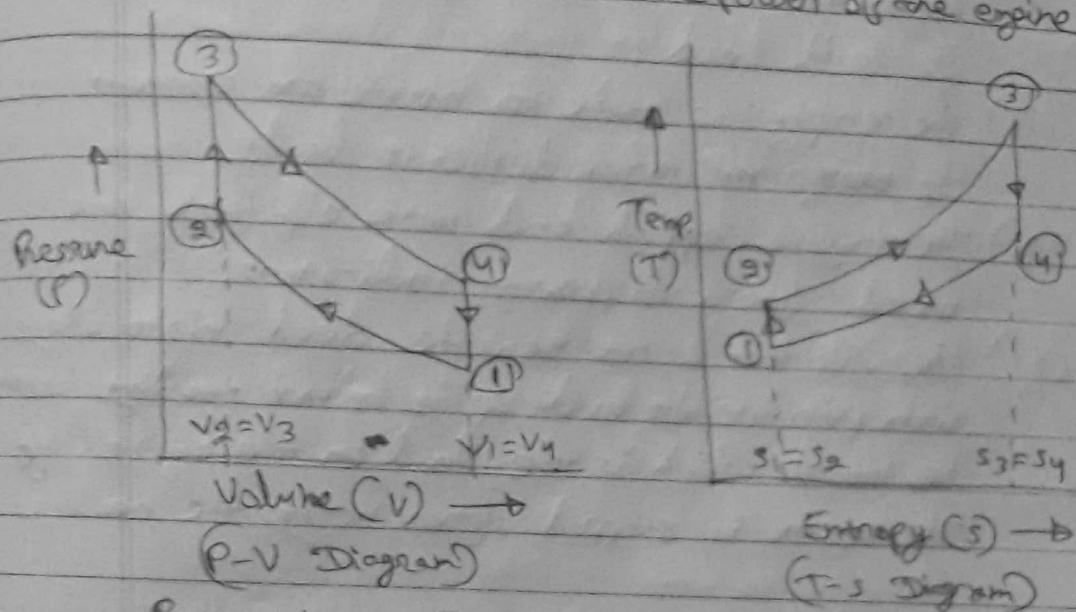 of the engine
3
3
2
4
1
Pressure
(P)
V2=V3
V1=V4
Volume (V)
(P-V Diagram)
Temp.
(T)
2
1
4
S1=S2
S3=S4
Entropy (S)
(T-s Diagram)